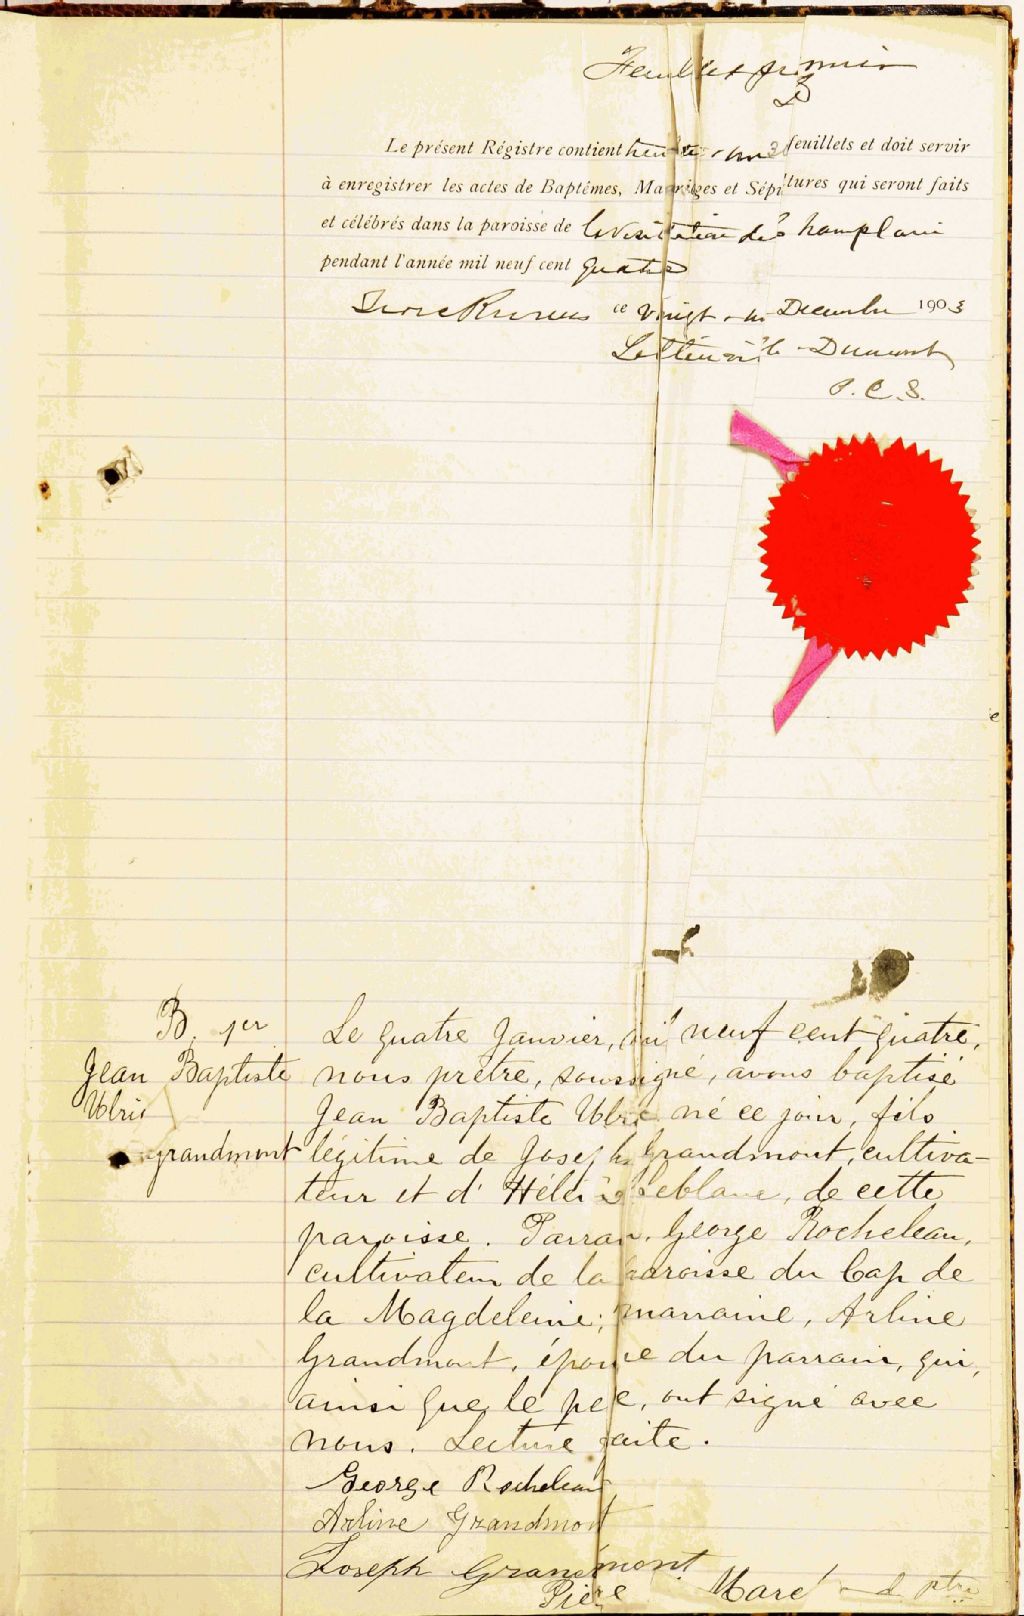 Feuillet premier
Le présent Régistre contient trente-un feuillets et doit servir
à enregistrer les actes de Baptêmes, Mariages et Sépultures qui seront faits
et célébrés dans la paroisse de la Visitation de Champlain
pendant l'année mil neuf cent quatre
Trois Rivières ce vingt-un Décembre 1903
Dumont
P. C. S.
B. 1er
Jean Baptiste
Ulric
grandmont
Le quatre Janvier, mil neuf cent quatre,
nous prêtre, soussigné, avons baptisé
Jean Baptiste Ulric né ce jour, fils
légitime de Joseph Grandmont, cultiva-
teur et d'Hélène Leblanc, de cette
paroisse. Parrain, George Rocheleau,
cultivateur de la paroisse du Cap de
la Magdeleine; marraine, Arline
Grandmont, épouse du parrain, qui,
ainsi que le père, ont signé avec
nous. Lecture faite.
George Rocheleau
Arline Grandmont
Joseph Grandmont
ptre